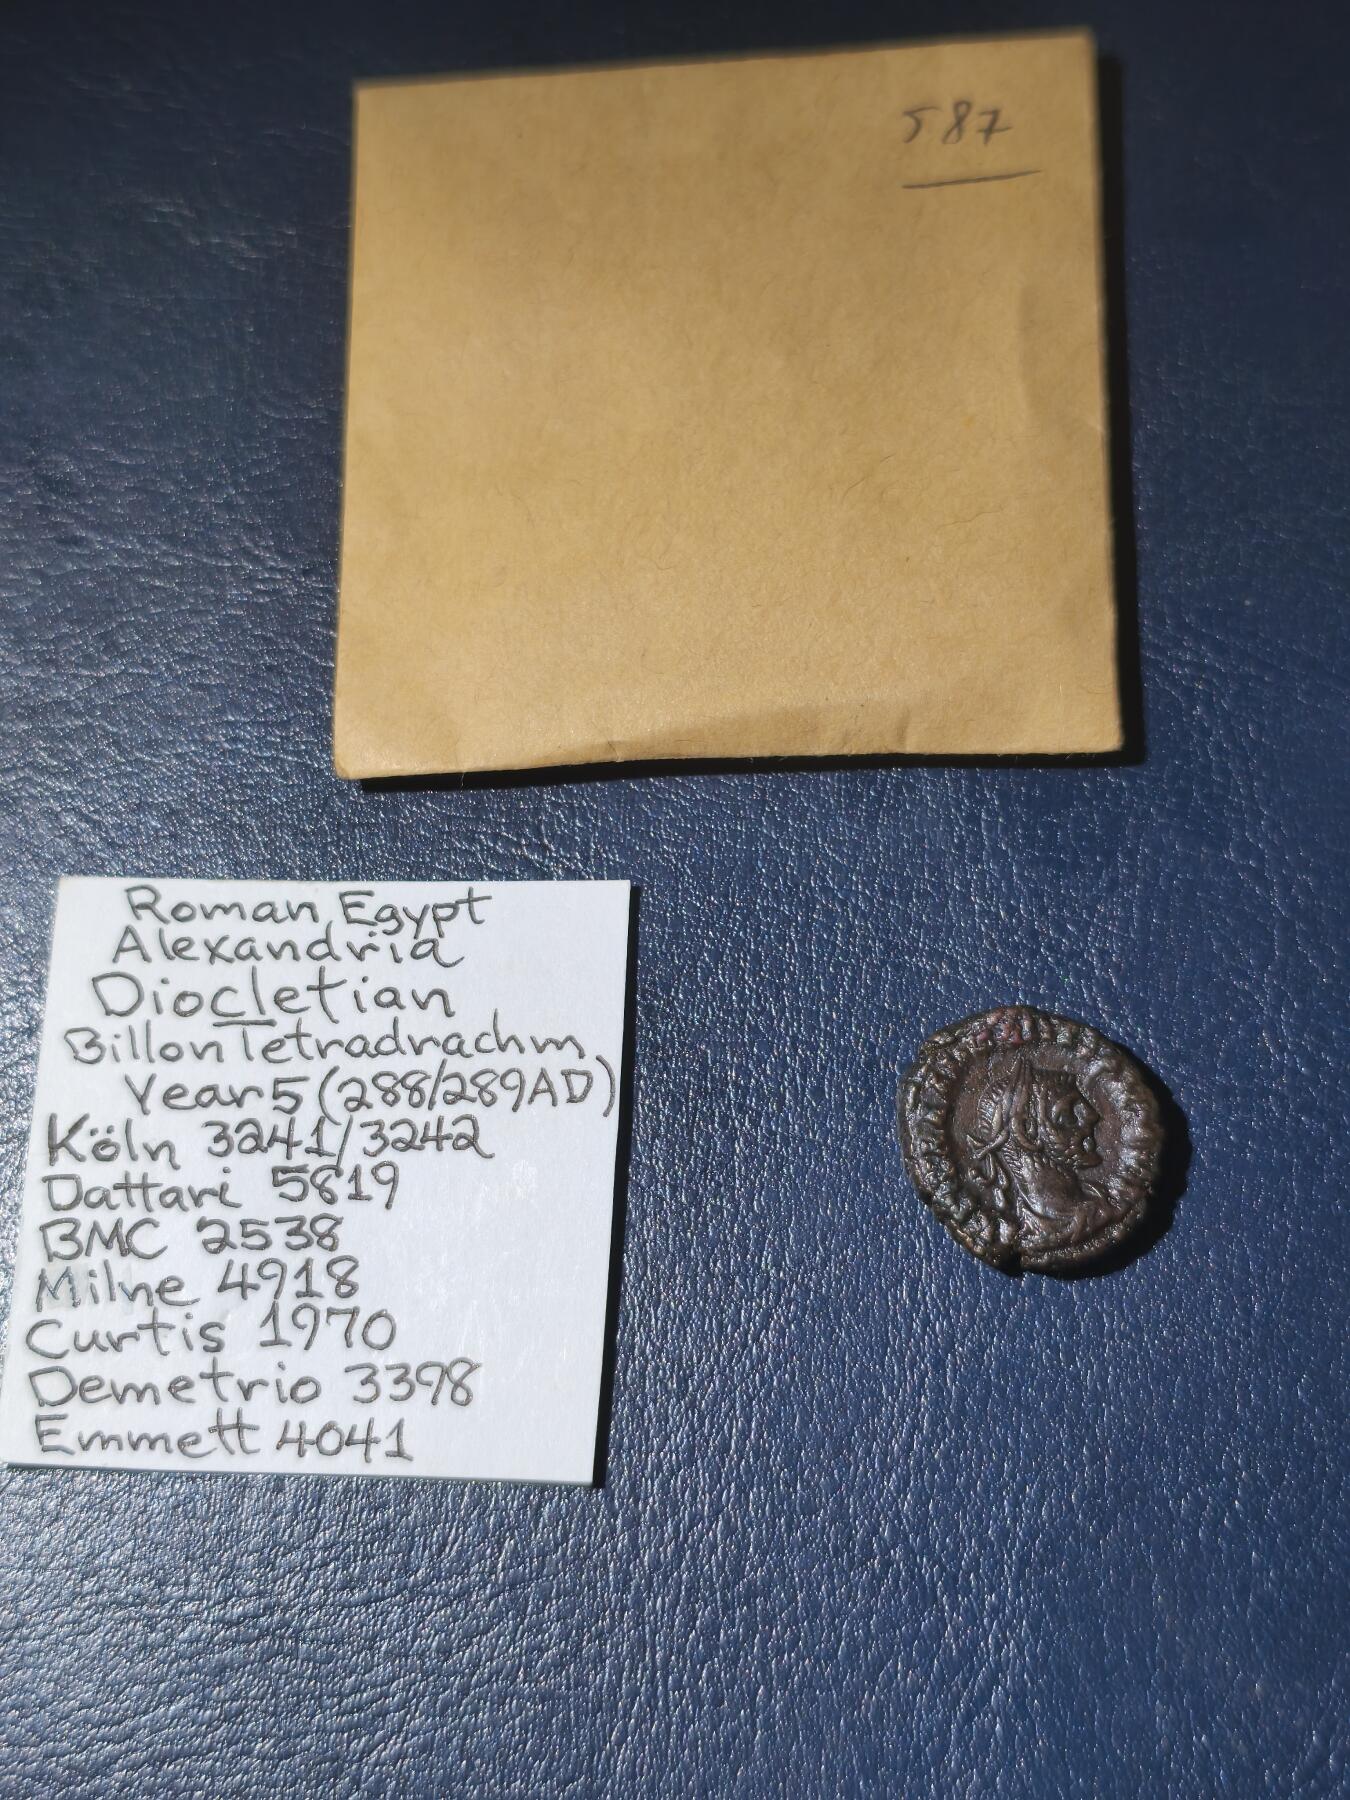 587
Roman Egypt
Alexandria
Diocletian
Billon Tetradrachm
Year 5 (288/289AD)
Köln 3241/3242
Dattari 5819
BMC 2538
Milne 4918
Curtis 1970
Demetrio 3398
Emmett 4041